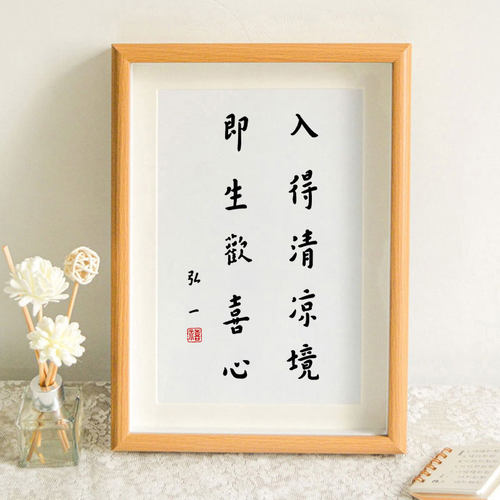 入得清凉境
即生歡喜心
弘一